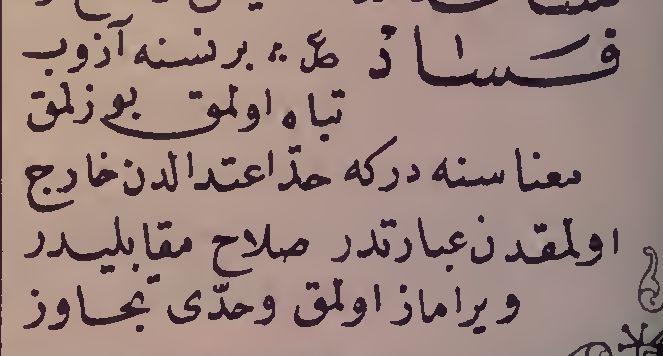 فساد ع : برنسنه آزوب
تباه اولمق بوزلمق
معناسنه دركه حدّ اعتدالدن خارج
اولمقدن عبارتدر صلاح مقابليدر
ويراماز اولمق وحدّى تجاوز